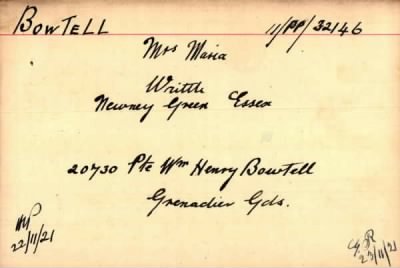 BOWTELL 11/PP/32146
Mrs Maria
Writtle
Newney Green Essex
20730 Pte Wm Henry Bowtell
Grenadier Gds.
22/11/21
23/11/21